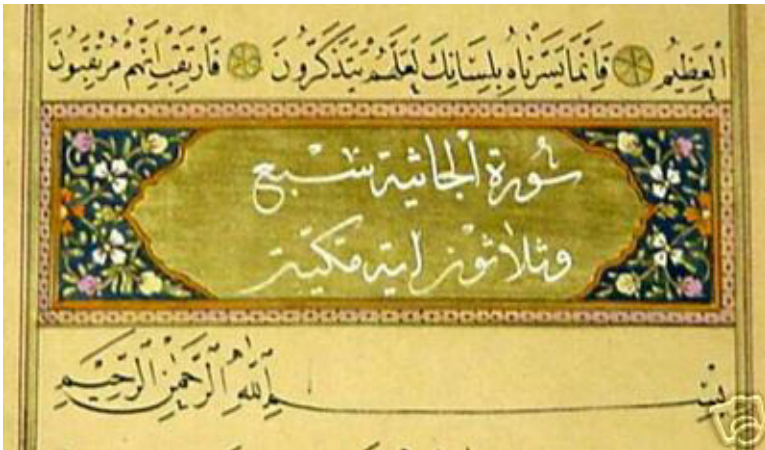 الْعَظِيمُ فَاِنَّمَا يَسَّرْنَاهُ بِلِسَانِكَ لَعَلَّهُمْ يَتَذَكَّرُونَ فَارْتَقِبْ اِنَّهُمْ مُرْتَقِبُونَ
سُورَةُ الْجَاثِيَةِ سَبْعٌ
وثلاثون اية مكية
بِسْمِ اللّٰهِ الرَّحْمٰنِ الرَّحِيمِ